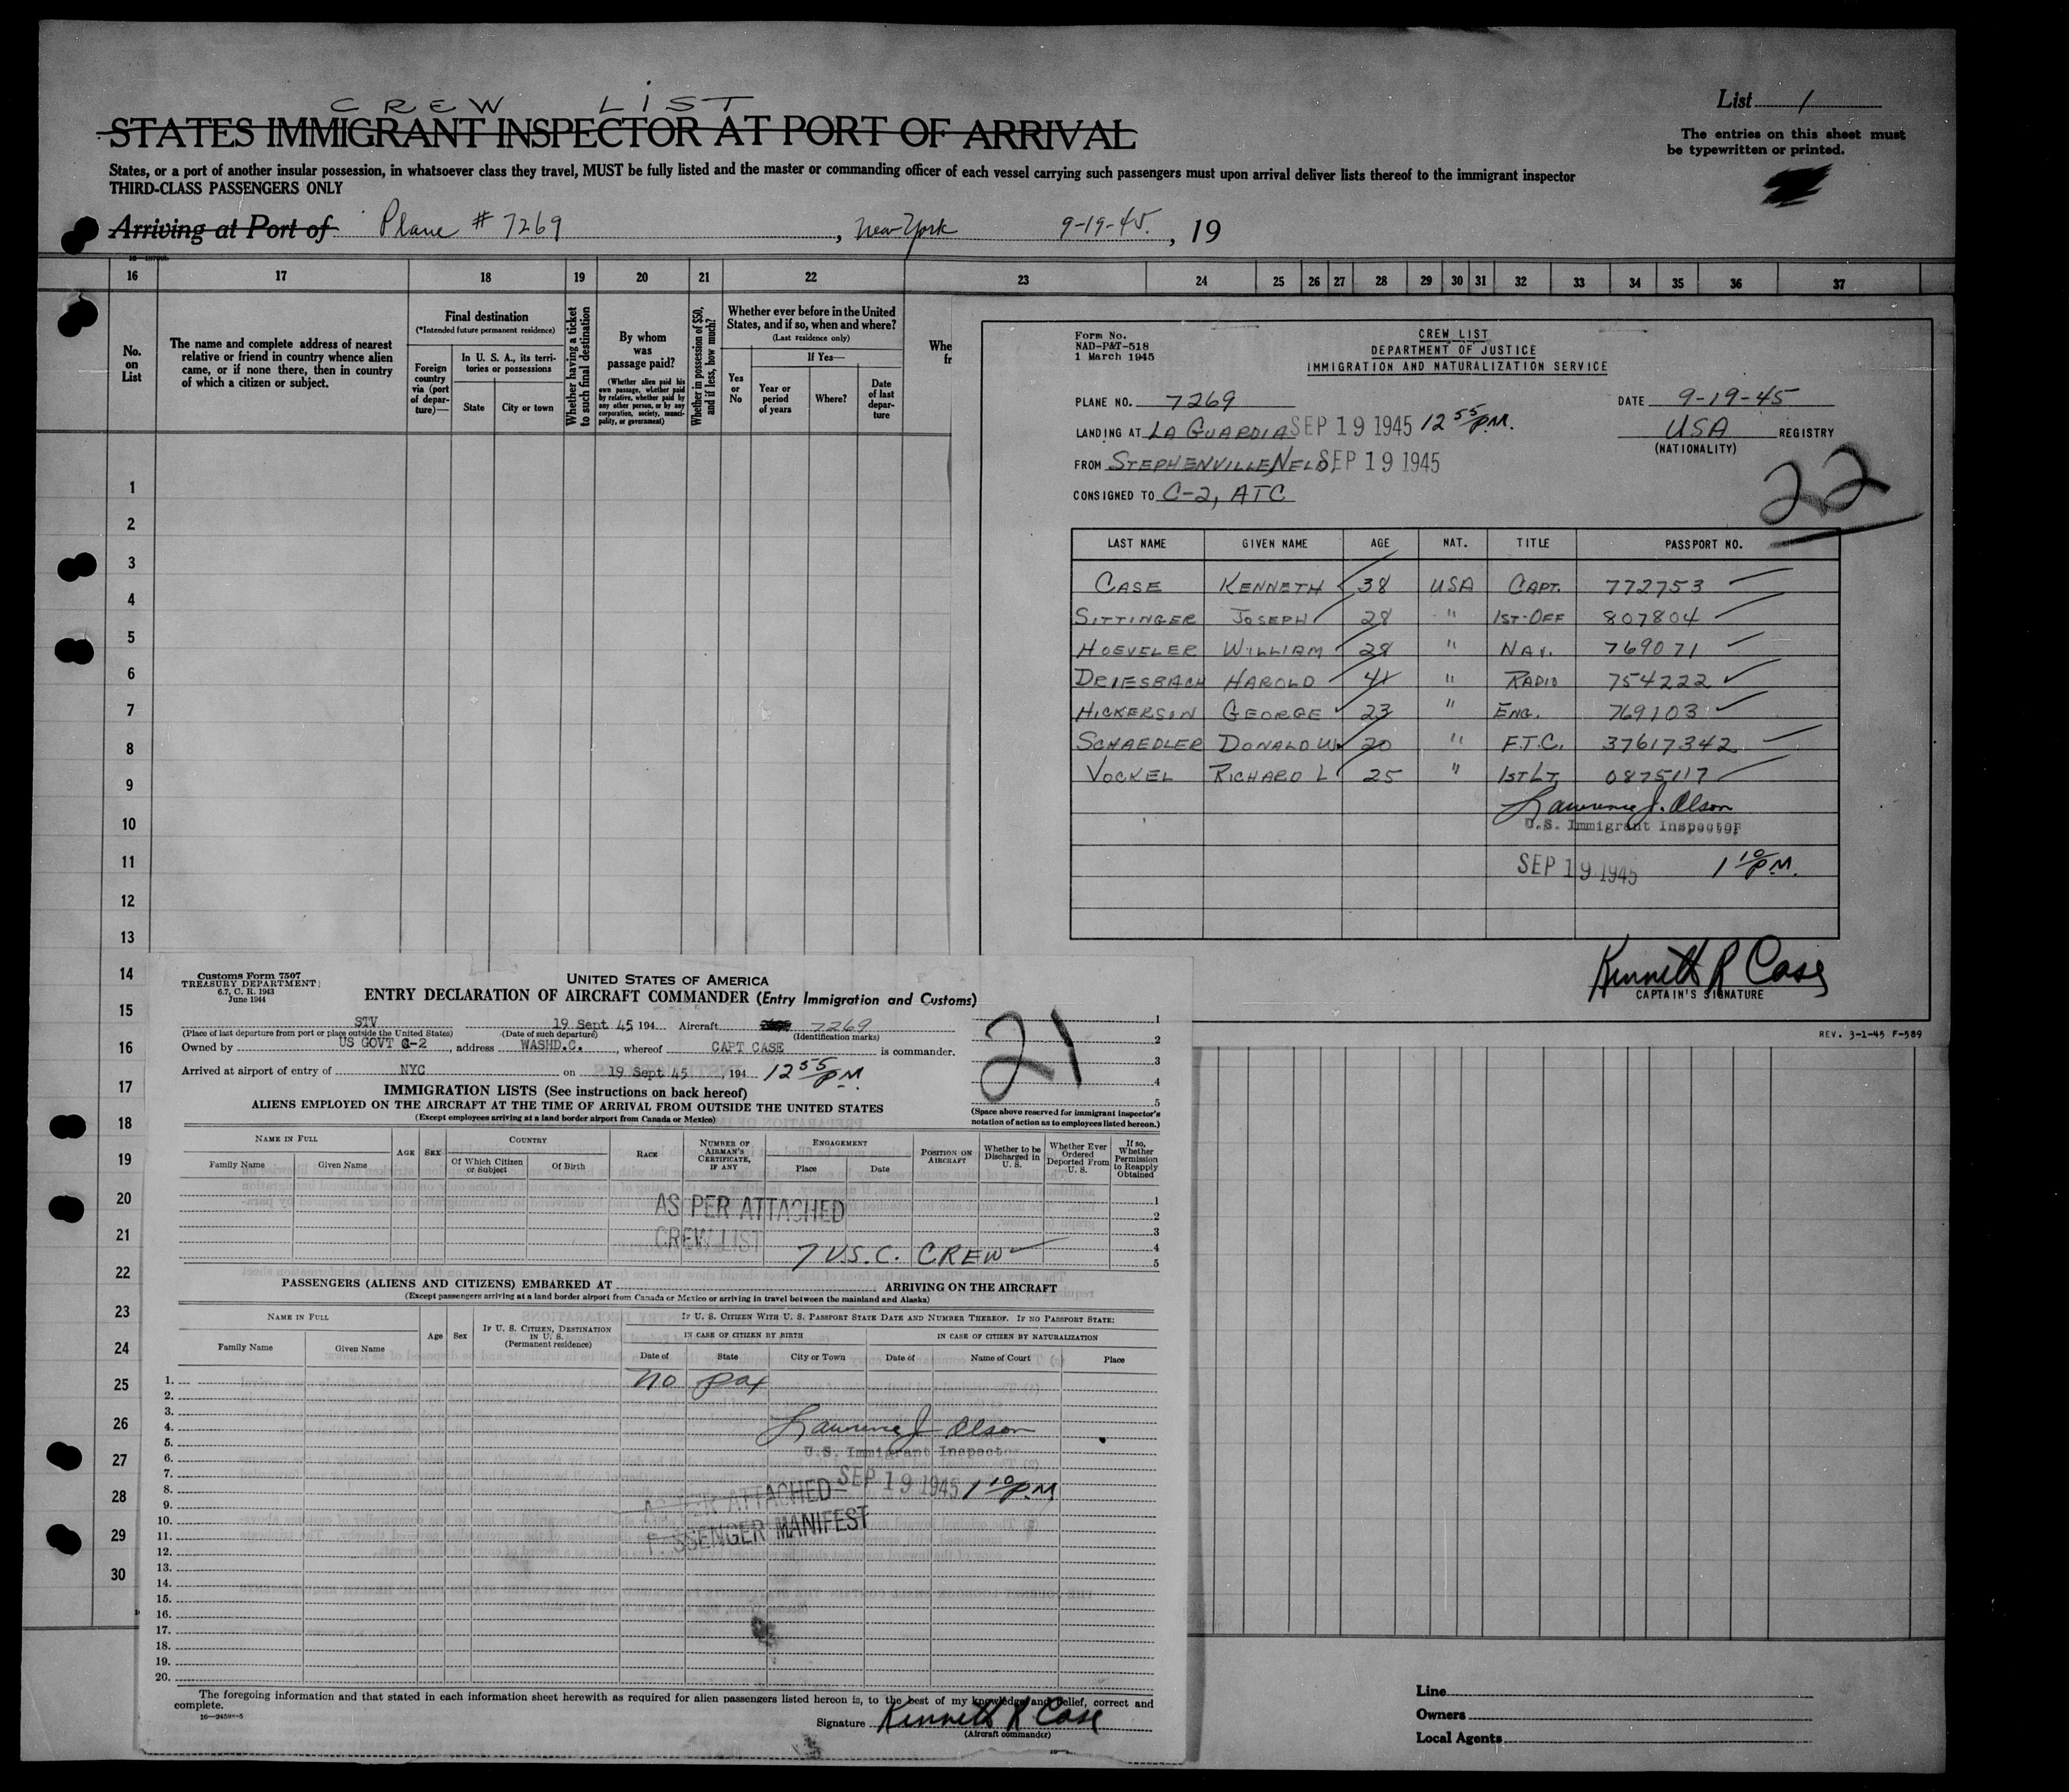 CREW LIST
List 1
STATES IMMIGRANT INSPECTOR AT PORT OF ARRIVAL
The entries on this sheet must
be typewritten or printed.
States, or a port of another insular possession, in whatsoever class they travel, MUST be fully listed and the master or commanding officer of each vessel carrying such passengers must upon arrival deliver lists thereof to the immigrant inspector
THIRD-CLASS PASSENGERS ONLY
Arriving at Port of Plane # 7269, New York 9-19-45, 19
16 17 18 19 20 21 22 23 24 25 26 27 28 29 30 31 32 33 34 35 36 37
No.
on
List
The name and complete address of nearest
relative or friend in country whence alien
came, or if none there, then in country
of which a citizen or subject.
Final destination
(*Intended future permanent residence)
Foreign
country
via (port
of depar-
ture)—
In U. S. A., its terri-
tories or possessions
State City or town
Whether having a ticket
to such final destination
By whom
was
passage paid?
(Whether alien paid his
own passage, whether paid
by relative, whether paid by
any other person, or by any
corporation, society, munici-
pality, or government)
Whether in possession of $50,
and if less, how much?
Whether ever before in the United
States, and if so, when and where?
(Last residence only)
If Yes—
Yes
or
No
Year or
period
of years
Where?
Date
of last
depar-
ture
Whe
fr
1
2
3
4
5
6
7
8
9
10
11
12
13
14
15
16
17
18
19
20
21
22
23
24
25
26
27
28
29
30
Form No.
NAD-P&T-518
1 March 1945
CREW LIST
DEPARTMENT OF JUSTICE
IMMIGRATION AND NATURALIZATION SERVICE
PLANE NO. 7269 DATE 9-19-45
LANDING AT LA GUARDIA SEP 19 1945 12 55 P.M. USA REGISTRY
(NATIONALITY)
FROM STEPHENVILLE, NFLD SEP 19 1945
22
CONSIGNED TO C-2, ATC
LAST NAME GIVEN NAME AGE NAT. TITLE PASSPORT NO.
CASE KENNETH 38 USA CAPT. 772753
SITTINGER JOSEPH 28 " 1ST-OFF 807804
HOEVELER WILLIAM 28 " NAV. 769071
DRIESBACH HAROLD 41 " RADIO 754222
HICKERSON GEORGE 23 " ENG. 769103
SCHAEDLER DONALD W. 20 " F.T.C. 37617342
VOCKEL RICHARD L 25 " 1ST LT. 0875117
Lawrence J. Olson
U.S. Immigrant Inspector
SEP 19 1945 1 10 P.M.
Kenneth R Case
CAPTAIN'S SIGNATURE
REV. 3-1-45 F-589
Customs Form 7507
TREASURY DEPARTMENT
6.7, C. R. 1943
June 1944
UNITED STATES OF AMERICA
ENTRY DECLARATION OF AIRCRAFT COMMANDER (Entry Immigration and Customs)
STV 19 Sept 45 194 Aircraft 7269
(Place of last departure from port or place outside the United States) (Date of such departure) (Identification marks)
Owned by US GOVT C-2, address WASHD.C., whereof CAPT CASE is commander.
Arrived at airport of entry of NYC on 19 Sept 45, 194 12 55 P.M.
21
1
2
3
4
5
(Space above reserved for immigrant inspector's
notation of action as to employees listed hereon.)
IMMIGRATION LISTS (See instructions on back hereof)
ALIENS EMPLOYED ON THE AIRCRAFT AT THE TIME OF ARRIVAL FROM OUTSIDE THE UNITED STATES
(Except employees arriving at a land border airport from Canada or Mexico)
NAME IN FULL
Family Name Given Name
AGE SEX
COUNTRY
Of Which Citizen
or Subject
Of Birth
RACE
NUMBER OF
AIRMAN'S
CERTIFICATE,
IF ANY
ENGAGEMENT
Place Date
POSITION ON
AIRCRAFT
Whether to be
Discharged in
U. S.
Whether Ever
Ordered
Deported From
U. S.
If so,
Whether
Permission
to Reapply
Obtained
1
2
3
4
5
AS PER ATTACHED
CREW LIST
7 U.S.C. CREW
PASSENGERS (ALIENS AND CITIZENS) EMBARKED AT ARRIVING ON THE AIRCRAFT
(Except passengers arriving at a land border airport from Canada or Mexico or arriving in travel between the mainland and Alaska)
NAME IN FULL
Family Name Given Name
Age Sex
IF U. S. CITIZEN, DESTINATION
IN U. S.
(Permanent residence)
IF U. S. CITIZEN WITH U. S. PASSPORT STATE DATE AND NUMBER THEREOF. IF NO PASSPORT STATE:
IN CASE OF CITIZEN BY BIRTH IN CASE OF CITIZEN BY NATURALIZATION
Date of State City or Town Date of Name of Court Place
1.
2.
3.
4.
5.
6.
7.
8.
9.
10.
11.
12.
13.
14.
15.
16.
17.
18.
19.
20.
no pax
Lawrence J Olson
U.S. Immigrant Inspector
SEP 19 1945 1 10 P.M.
AS PER ATTACHED
PASSENGER MANIFEST
The foregoing information and that stated in each information sheet herewith as required for alien passengers listed hereon is, to the best of my knowledge and belief, correct and
complete.
Signature Kenneth R Case
(Aircraft commander)
Line
Owners
Local Agents